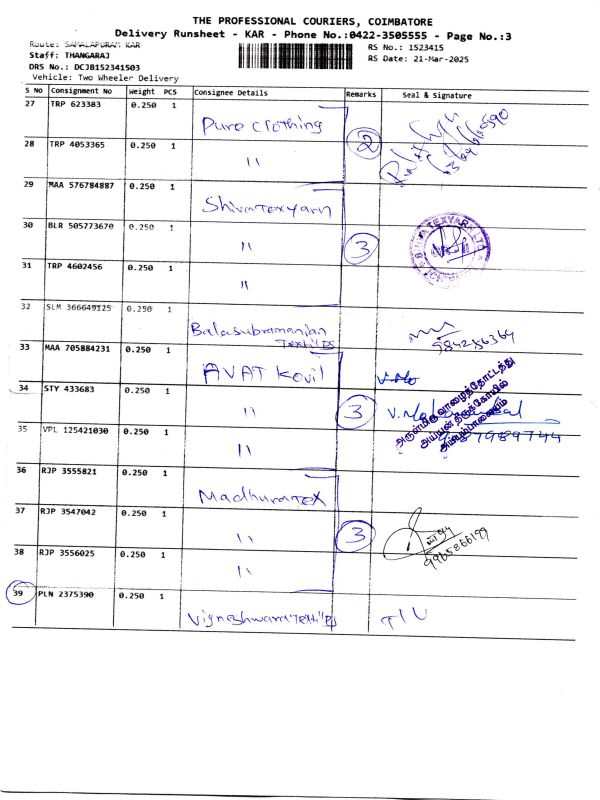 THE PROFESSIONAL COURIERS, COIMBATORE
Delivery Runsheet - KAR - Phone No.:0422-3505555 - Page No.:3
Route: SAMALAPURAM KAR
Staff: THANGARAJ
DRS No.: DCJB152341503
Vehicle: Two Wheeler Delivery
RS No.: 1523415
RS Date: 21-Mar-2025
S No Consignment No Weight PCS Consignee Details Remarks Seal & Signature
27 TRP 623383 0.250 1 Pure Clothing
28 TRP 4053365 0.250 1 " 2
29 MAA 576784887 0.250 1 Shivatexyarn
30 BLR 505773670 0.250 1 " 3
31 TRP 4602456 0.250 1 "
32 SLM 366649125 0.250 1 Balasubramanian Textiles
33 MAA 705884231 0.250 1 AVAT Kovil
34 STY 433683 0.250 1 " 3
அருள்மிகு வாழைத்தோட்டத்து
அய்யன் திருக்கோயில்
அய்யம்பாளையம்
35 VPL 125421030 0.250 1 "
36 RJP 3555821 0.250 1 Madhuratex
37 RJP 3547042 0.250 1 " 3
9965866199
38 RJP 3556025 0.250 1 "
39 PLN 2375390 0.250 1 Vigneshwara Textiles